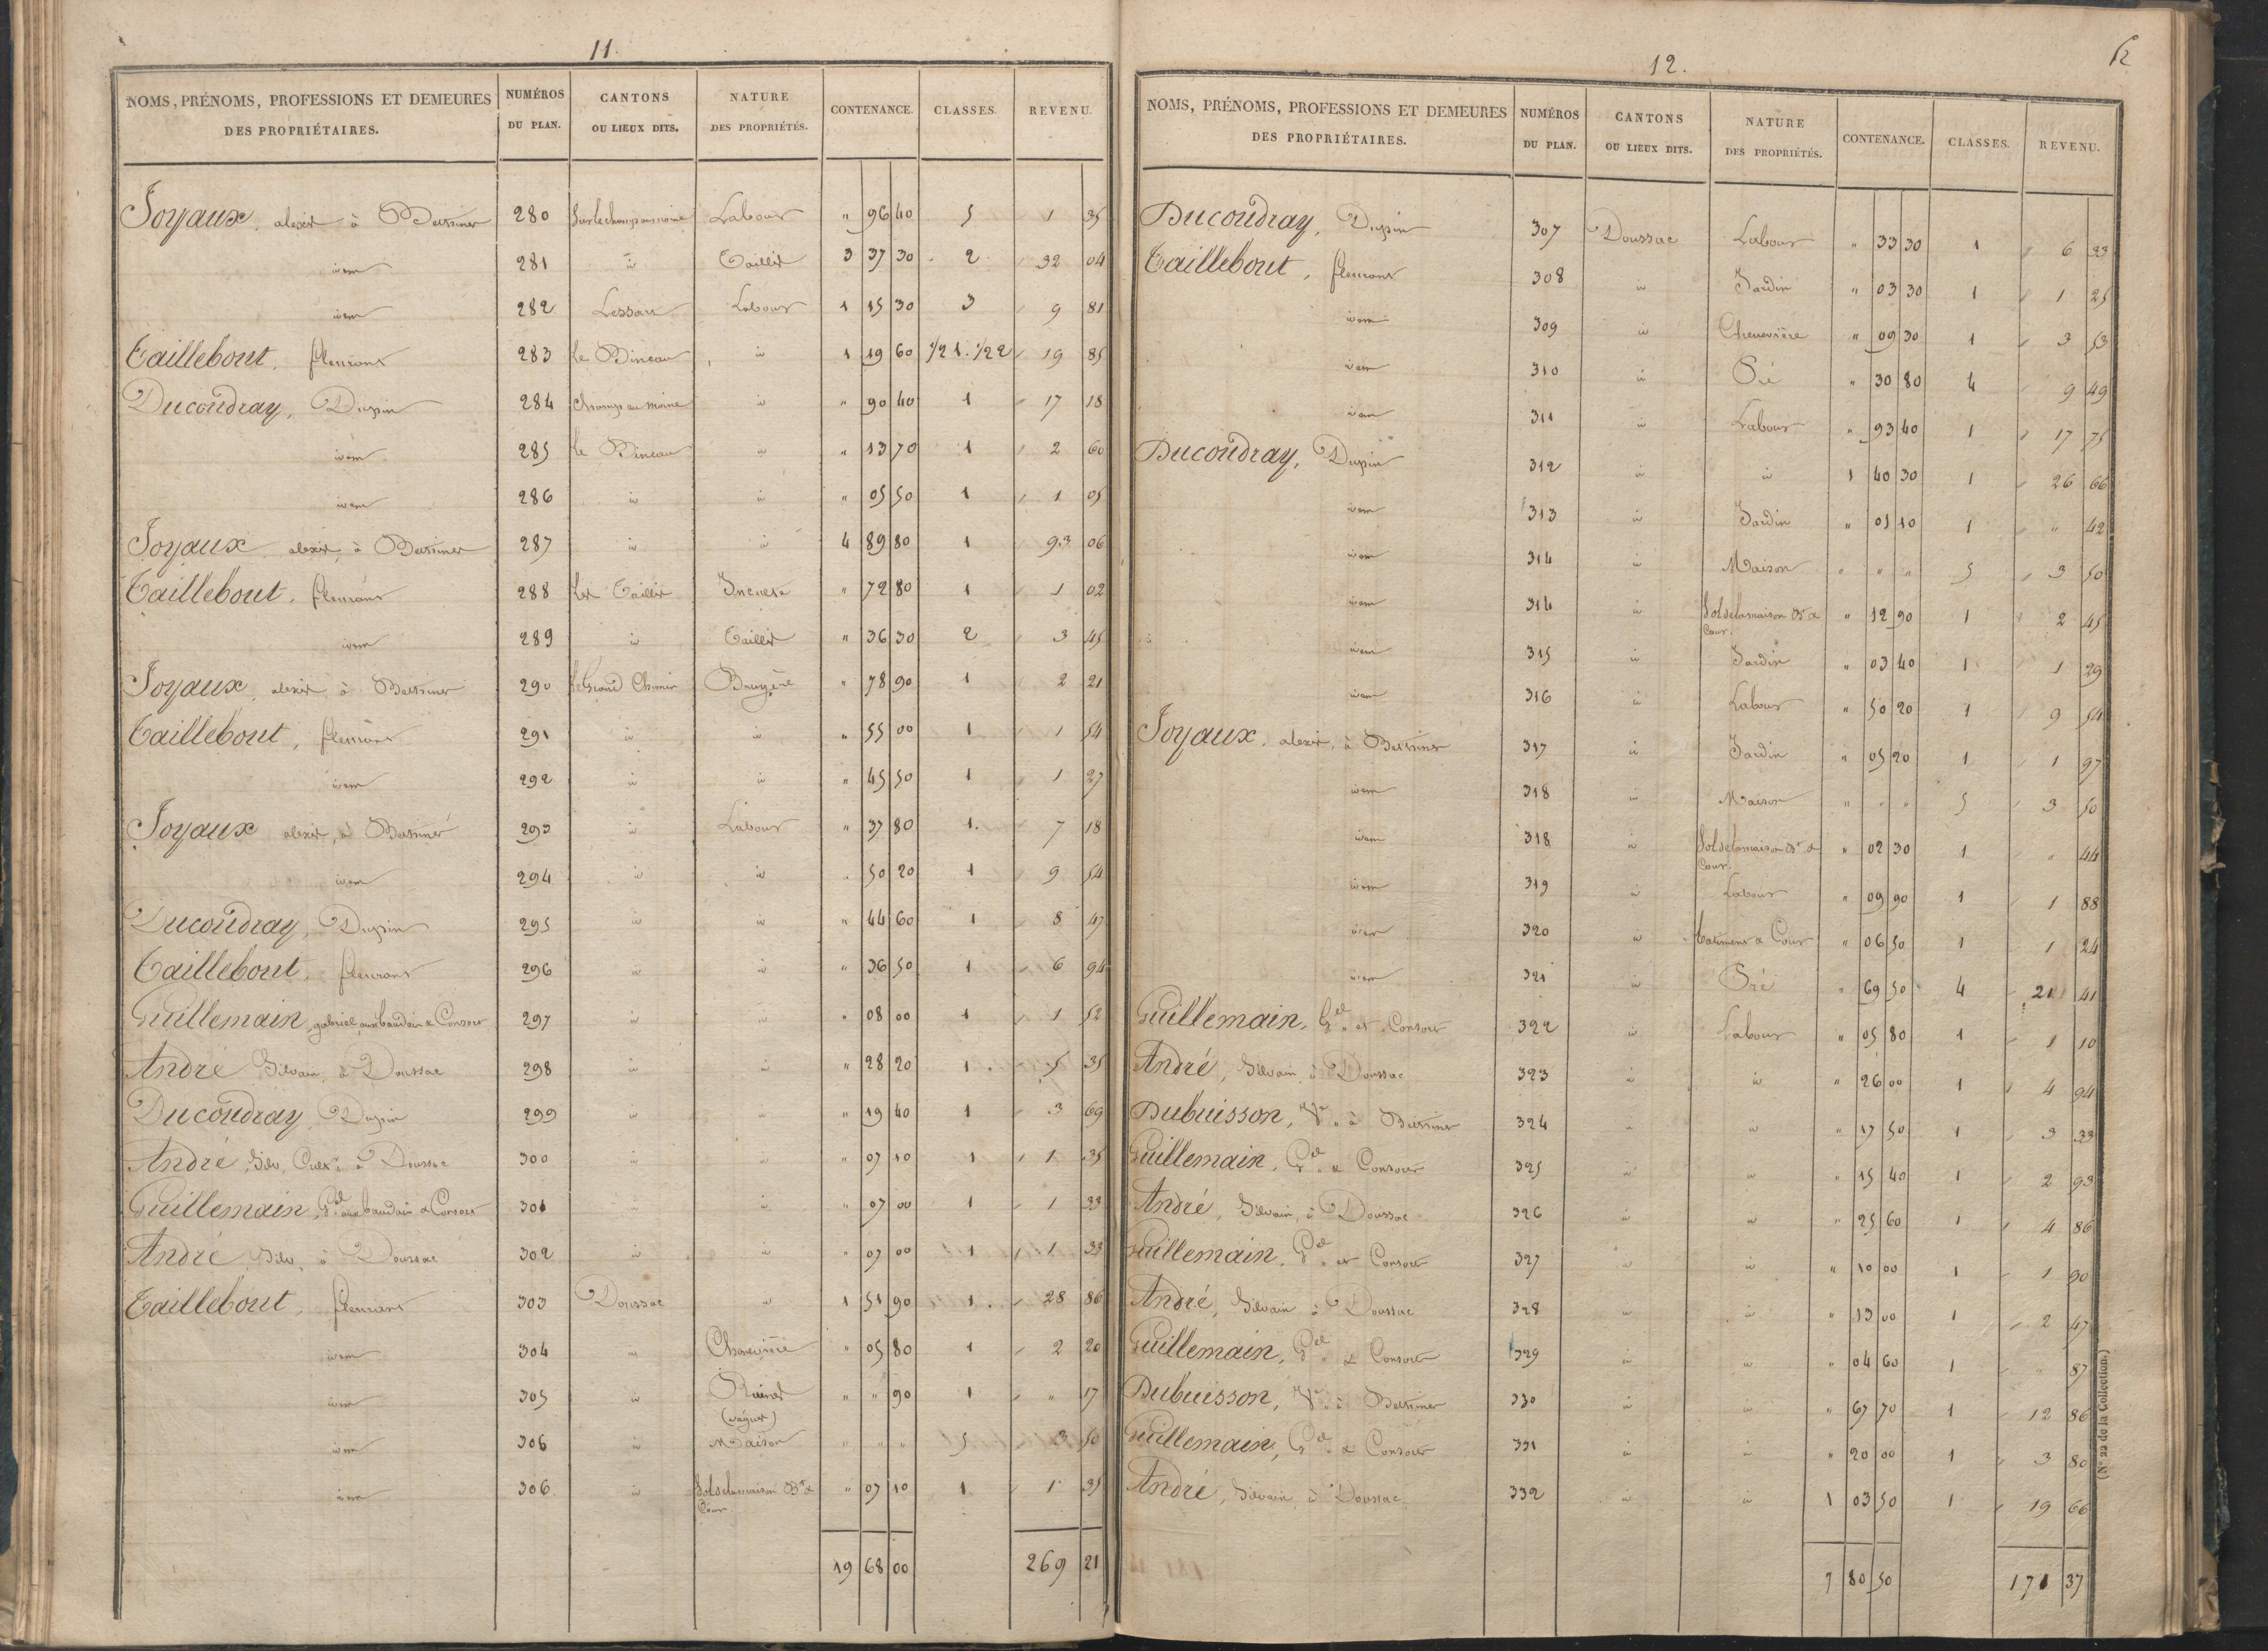 11.
NOMS, PRÉNOMS, PROFESSIONS ET DEMEURES DES PROPRIÉTAIRES. NUMÉROS DU PLAN. CANTONS OU LIEUX DITS. NATURE DES PROPRIÉTÉS. CONTENANCE. CLASSES. REVENU.
Joyaux, alexis à 280 Labour " 96 40 5 1 35
idem 281 id Taillis 3 37 30 2 32 04
idem 282 Lessart Labour 1 15 30 3 9 81
Taillebout, fleurant 283 Le Bineau id 1 19 60 1/2 1. 1/2 2 19 85
Ducoudray, Dupin 284 Champ au moine id " 90 40 1 17 18
idem 285 Le Bineau id " 13 70 1 2 60
idem 286 id id " 05 50 1 1 05
Joyaux alexis, à 287 id id 4 89 80 1 93 06
Taillebout, fleurant 288 Les Taillis Inculte " 72 80 1 1 02
idem 289 id Taillis " 36 30 2 3 45
Joyaux, alexis, à 290 Le Grand Chemin Bruyère " 78 90 1 2 21
Taillebout, fleurant 291 id id " 55 00 1 1 54
idem 292 id id " 45 50 1 1 27
Joyaux alexis, à 293 id Labour " 37 80 1. 7 18
idem 294 id id " 50 20 1 9 54
Ducoudray, Dupin 295 id id " 44 60 1 8 47
Taillebout, fleurant 296 id id " 36 50 1 6 94
Guillemain, gabriel, aux baudoin & Consors 297 id id " 08 00 1 1 52
André Silvain, à Doussac 298 id id " 28 20 1. 5 35
Ducoudray, Dupin 299 id id " 19 40 1 3 69
André, Silv, à Doussac 300 id id " 07 10 1 1 35
Guillemain, Gel aux baudoin & Consors 301 id id " 07 00 1 1 33
André, Silv, à Doussac 302 id id " 07 00 1 1 33
Taillebout, fleurant 303 Doussac id 1 51 90 1. 28 86
idem 304 id Chenevière " 05 80 1 2 20
idem 305 id Ruines " " 90 1 " 17
idem 306 id Maison " " " 5 3 50
idem 306 id Sol de la maison Bt & Cour " 07 10 1 1 35
19 68 00 269 21
12.
NOMS, PRÉNOMS, PROFESSIONS ET DEMEURES DES PROPRIÉTAIRES. NUMÉROS DU PLAN. CANTONS OU LIEUX DITS. NATURE DES PROPRIÉTÉS. CONTENANCE. CLASSES. REVENU.
Ducoudray, Dupin 307 Doussac Labour " 33 30 1 6 33
Taillebout, fleurant 308 id Jardin " 03 30 1 1 25
idem 309 id Chenevière " 09 30 1 3 53
idem 310 id Pré " 30 80 4 9 49
idem 311 id Labour " 93 40 1 17 75
Ducoudray, Dupin 312 id id 1 40 30 1 26 66
idem 313 id Jardin " 01 10 1 " 42
idem 314 id Maison " " " 5 3 50
idem 314 id Sol de la maison Bt & Cour. " 12 90 1 2 45
idem 315 id Jardin " 03 40 1 1 29
idem 316 id Labour " 50 20 1 9 54
Joyaux, alexis, à 317 id Jardin " 05 20 1 1 97
idem 318 id Maison " " " 5 3 50
idem 318 id Sol de la maison Bt & Cour. " 02 30 1 " 44
idem 319 id Labour " 09 90 1 1 88
idem 320 id Batimens & Cour " 06 50 1 1 24
idem 321 id Pré " 69 50 4 21 41
Guillemain, Gel et Consors 322 id Labour " 05 80 1 1 10
André, Silvain, à Doussac 323 id id " 26 00 1 4 94
Dubuisson, Ve à 324 id id " 17 50 1 3 33
Guillemain, Gel & Consors 325 id id " 15 40 1 2 93
André, Silvain, à Doussac 326 id id " 25 60 1 4 86
Guillemain, Gel et Consors 327 id id " 10 00 1 1 90
André, Silvain à Doussac 328 id id " 13 00 1 2 47
Guillemain, Gel & Consors 329 id id " 04 60 1 " 87
Dubuisson, Ve à 330 id id " 67 70 1 12 86
Guillemain, Gel & Consors 331 id id " 20 00 1 3 80
André, Silvain à Doussac 332 id id 1 03 50 1 19 66
7 80 50 171 37
(N° 22 de la Collection.)